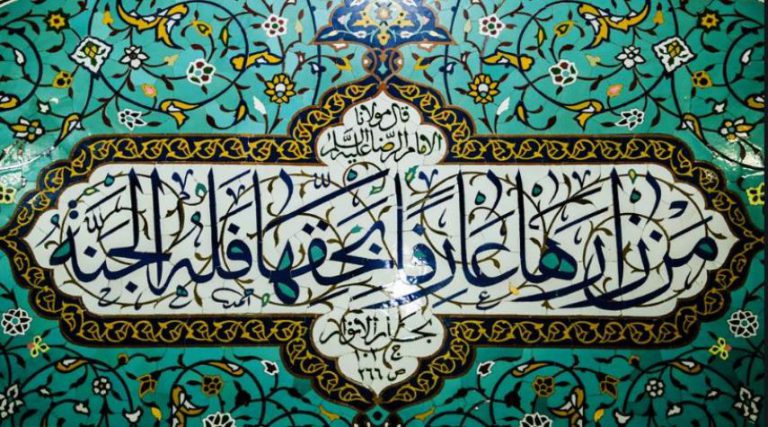 قال مولانا
الإمام الرضا عليه السلام
مَنْ زَارَهَا عَارِفًا بِحَقِّهَا فَلَهُ الْجَنَّةُ
بحار الأنوار
ج ١٠٢
ص ٢٦٦